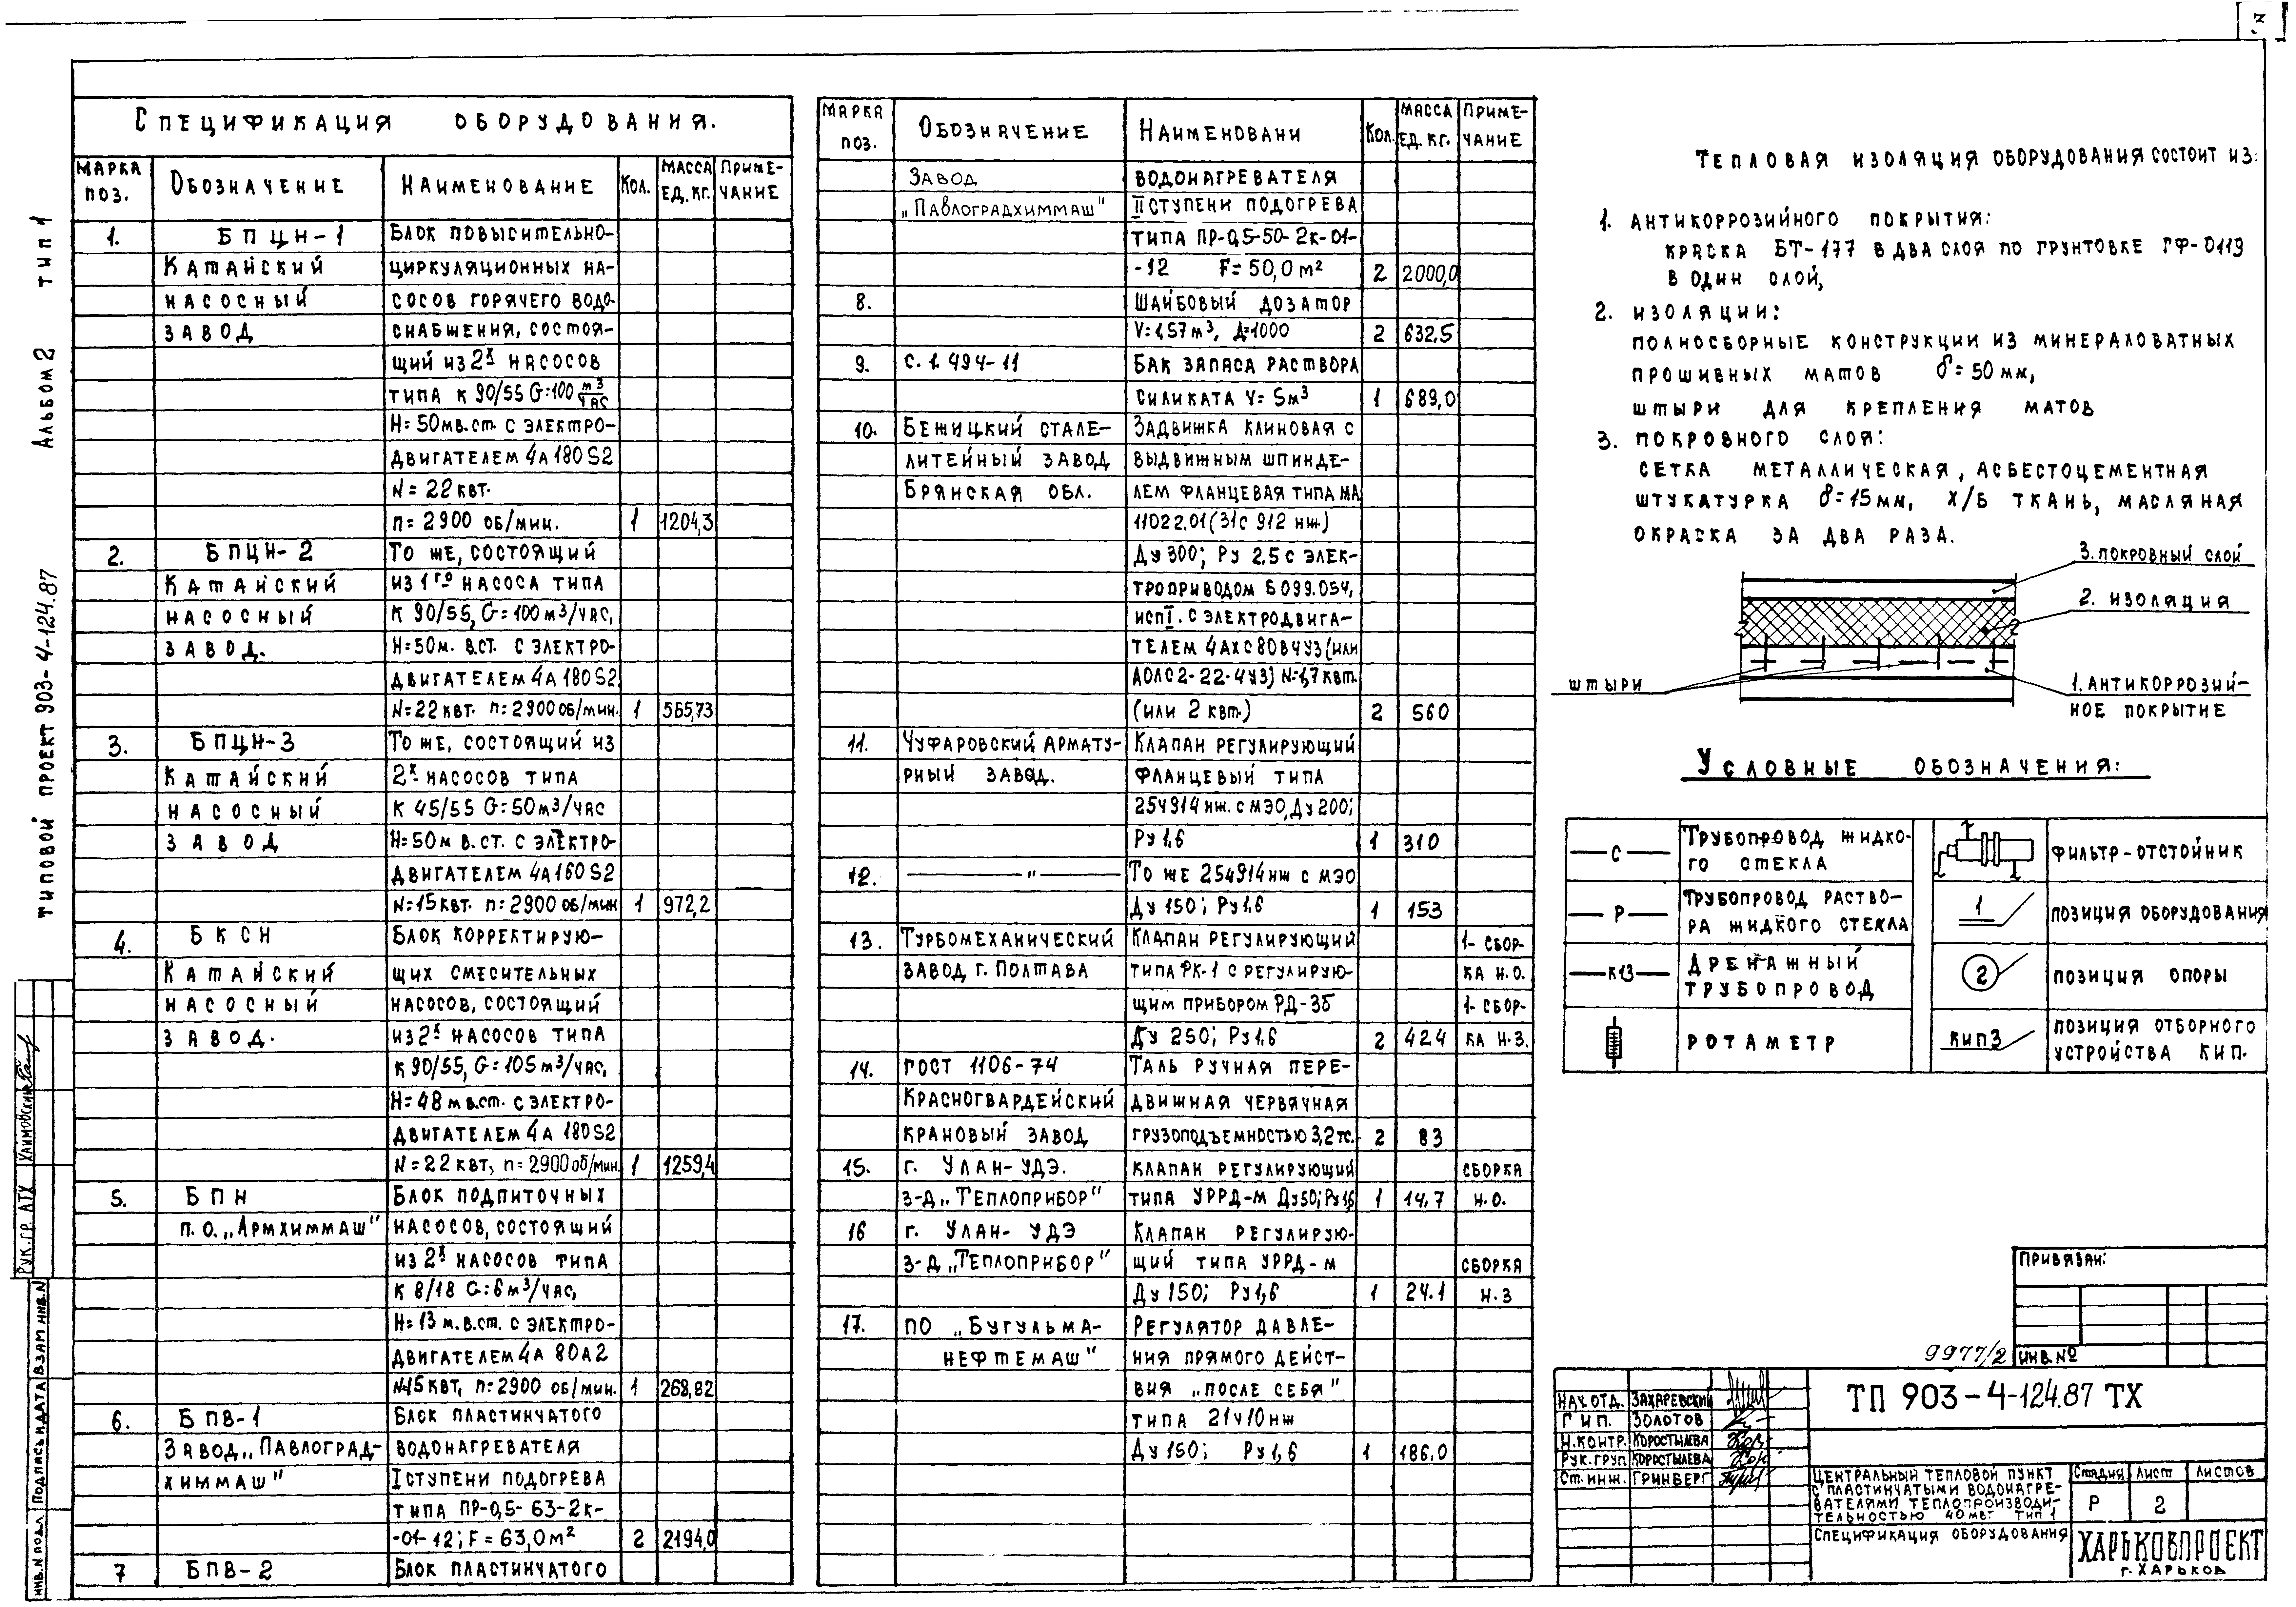 3
Спецификация оборудования.
Марка поз. | Обозначение | Наименование | Кол. | Масса ед. кг. | Приме-чание
1. | БПЦН-1 | Блок повысительно-
Катайский | циркуляционных на-
насосный | сосов горячего водо-
завод | снабжения, состоя-
щий из 2х насосов
типа К 90/55 G=100 м³/час
H=50м в.ст. с электро-
двигателем 4А180S2
N=22 квт.
n=2900 об/мин. | 1 | 1204,3
2. | БПЦН-2 | То же, состоящий
Катайский | из 1го насоса типа
насосный | К 90/55, G=100 м³/час,
завод. | H=50м. в.ст. с электро-
двигателем 4А180S2
N=22 квт. n=2900 об/мин. | 1 | 565,73
3. | БПЦН-3 | То же, состоящий из
Катайский | 2х насосов типа
насосный | К 45/55 G=50 м³/час
завод | H=50м в.ст. с электро-
двигателем 4А160S2
N=15 квт. n=2900 об/мин | 1 | 972,2
4. | БКСН | Блок корректирую-
Катайский | щих смесительных
насосный | насосов, состоящий
завод. | из 2х насосов типа
К 90/55, G=105 м³/час,
H=48 м в.ст. с электро-
двигателем 4А 180S2
N=22 квт, n=2900 об/мин. | 1 | 1259,4
5. | БПН | Блок подпиточных
п.о. „Армхиммаш" | насосов, состоящий
из 2х насосов типа
К 8/18 G=6 м³/час,
H=13 м.в.ст. с электро-
двигателем 4А 80А2
N=15 квт, n=2900 об/мин. | 1 | 268,82
6. | БПВ-1 | Блок пластинчатого
Завод „Павлоград- | водонагревателя
химмаш" | I ступени подогрева
типа ПР-0,5-63-2к-
-01-12; F=63,0 м² | 2 | 2194,0
7 | БПВ-2 | Блок пластинчатого
Марка поз. | Обозначение | Наименовани | Кол. | Масса ед. кг. | Приме-чание
Завод | водонагревателя
„Павлоградхиммаш" | II ступени подогрева
типа ПР-0,5-50-2к-01-
-12 F=50,0 м² | 2 | 2000,0
8. | Шайбовый дозатор
V=1,57 м³, Д=1000 | 2 | 632,5
9. | С. 1. 494-11 | Бак запаса раствора
силиката V=5м³ | 1 | 689,0
10. | Бежицкий стале- | Задвижка клиновая с
литейный завод | выдвижным шпинде-
Брянская обл. | лем фланцевая типа МА
11022.01 (31с 912 нж)
Ду 300; Ру 2.5 с элек-
троприводом Б 099.054,
исп I. с электродвига-
телем 4АХС80В4У3 (или
АОЛС2-22-4У3) N=1,7 квт.
(или 2 квт.) | 2 | 560
11. | Чуфаровский армату- | Клапан регулирующий
рный завод. | фланцевый типа
25ч914 нж. с МЭО, Ду 200;
Ру 1.6 | 1 | 310
12. | — „ — | То же 25ч914 нж с МЭО
Ду 150; Ру 1.6 | 1 | 153
13. | Турбомеханический | Клапан регулирующий | 1- сбор-
завод г. Полтава | типа РК-1 с регулирую- | ка н.о.
щим прибором РД-3б | 1- сбор-
Ду 250; Ру 1.6 | 2 | 424 | ка н.з.
14. | ГОСТ 1106-74 | Таль ручная пере-
Красногвардейский | движная червячная
крановый завод | грузоподъемностью 3,2 тс. | 2 | 83
15. | г. Улан-Удэ. | Клапан регулирующий | сборка
з-д „Теплоприбор" | типа УРРД-М Ду 50; Ру 1,6 | 1 | 14.7 | н.о.
16 | г. Улан-Удэ | Клапан регулирую-
з-д „Теплоприбор" | щий типа УРРД-М | сборка
Ду 150; Ру 1,6 | 1 | 24.1 | н.з
17. | ПО „Бугульма- | Регулятор давле-
нефтемаш" | ния прямого дейст-
вия „после себя"
типа 21ч10нж
Ду 150; Ру 1,6 | 1 | 186.0
Тепловая изоляция оборудования состоит из:
1. Антикоррозийного покрытия:
краска БТ-177 в два слоя по грунтовке ГФ-0119
в один слой,
2. изоляции:
полносборные конструкции из минераловатных
прошивных матов δ=50 мм,
штыри для крепления матов
3. покровного слоя:
сетка металлическая, асбестоцементная
штукатурка δ=15 мм, х/б ткань, масляная
окраска за два раза.
3. покровный слой
2. изоляция
штыри
1. антикоррозий-
ное покрытие
Условные обозначения:
— С — | Трубопровод жидко-
го стекла | фильтр-отстойник
— Р — | Трубопровод раство-
ра жидкого стекла | 1 | позиция оборудования
— К13 — | Дренажный
трубопровод | 2 | позиция опоры
Ротаметр | КИП3 | позиция отборного
устройства КИП.
Привязан:
9977/2 инв. №
Нач. отд. Захаревский
ГИП. Золотов
Н.контр. Коростылева
Рук.груп Коростылева
Ст. инж. Гринберг
ТП 903-4-124.87 ТХ
Центральный тепловой пункт
с пластинчатыми водонагре-
вателями теплопроизводи-
тельностью 40мвт тип 1
Стадия Лист Листов
Р 2
Спецификация оборудования
ХАРЬКОВПРОЕКТ
г. Харьков
Типовой проект 903-4-124.87 Альбом 2 тип 1
Рук. гр. АТХ Хаимовский
Инв. N подл. Подпись и дата Взам инв. N